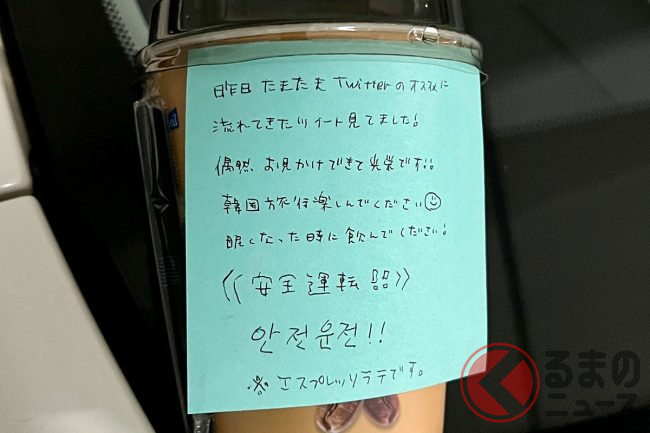 昨日 たまたま Twitterのオススメに
流れてきたツイート見てました!
偶然 お見かけできて光栄です!!
韓国旅行楽しんでください☺
眠くなった時に飲んでください!
《安全運転》
안전운전!!
※エスプレッソラテです。
くるまの
ニュース